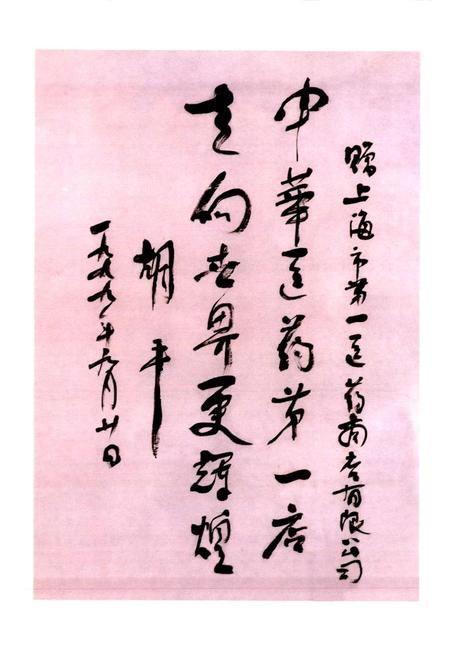 赠上海市第一医药商店有限公司
中華医药第一店
走向世界更辉煌
胡平
一九九九年九月廿日